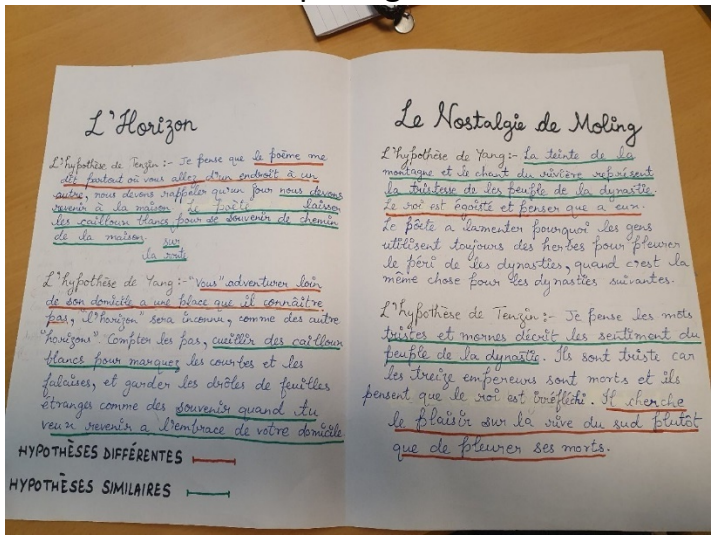 L'Horizon
L'hypothèse de Tenzin :- Je pense que le poème me
dit partout où vous allez d'un endroit à un
autre, nous devons rappeler qu'un jour nous devons
revenir à la maison. Le poète laisser
les cailloun blancs pour se souvenir de chemin
de la maison. sur
la route
L'hypothèse de Yang :- "Vous" adventurer loin
de son domicile a une place que il connaître
pas, "l'horizon" sera inconnu, comme des autre
"horizons". Compter les pas, cueillir des cailloun
blancs pour marquez les courbes et les
falaises, et garder les drôles de feuilles
étranges comme des souvenir quand tu
veux revenir a l'embrace de votre domicile.
HYPOTHÈSES DIFFÉRENTES
HYPOTHÈSES SIMILAIRES
Le Nostalgie de Moling
L'hypothèse de Yang :- La teinte de la
montagne et le chant du rivière représent
la tristesse de les peuple de la dynastie.
Le roi est égoïste et penser que a eux.
Le pöite a lamenter pourquoi les gens
utilisent toujours des herbes pour pleurer
le péri de les dynasties, quand c'est la
même chose pour les dynasties suivantes.
L'hypothèse de Tenzin :- Je pense les mots
tristes et mornes décrit les sentiment du
peuple de la dynastie. Ils sont triste car
les treize empereurs sont morts et ils
pensent que le roi est irréfléchi. Il cherche
le plaisir sur la rive du sud plutôt
que de pleurer ses morts.